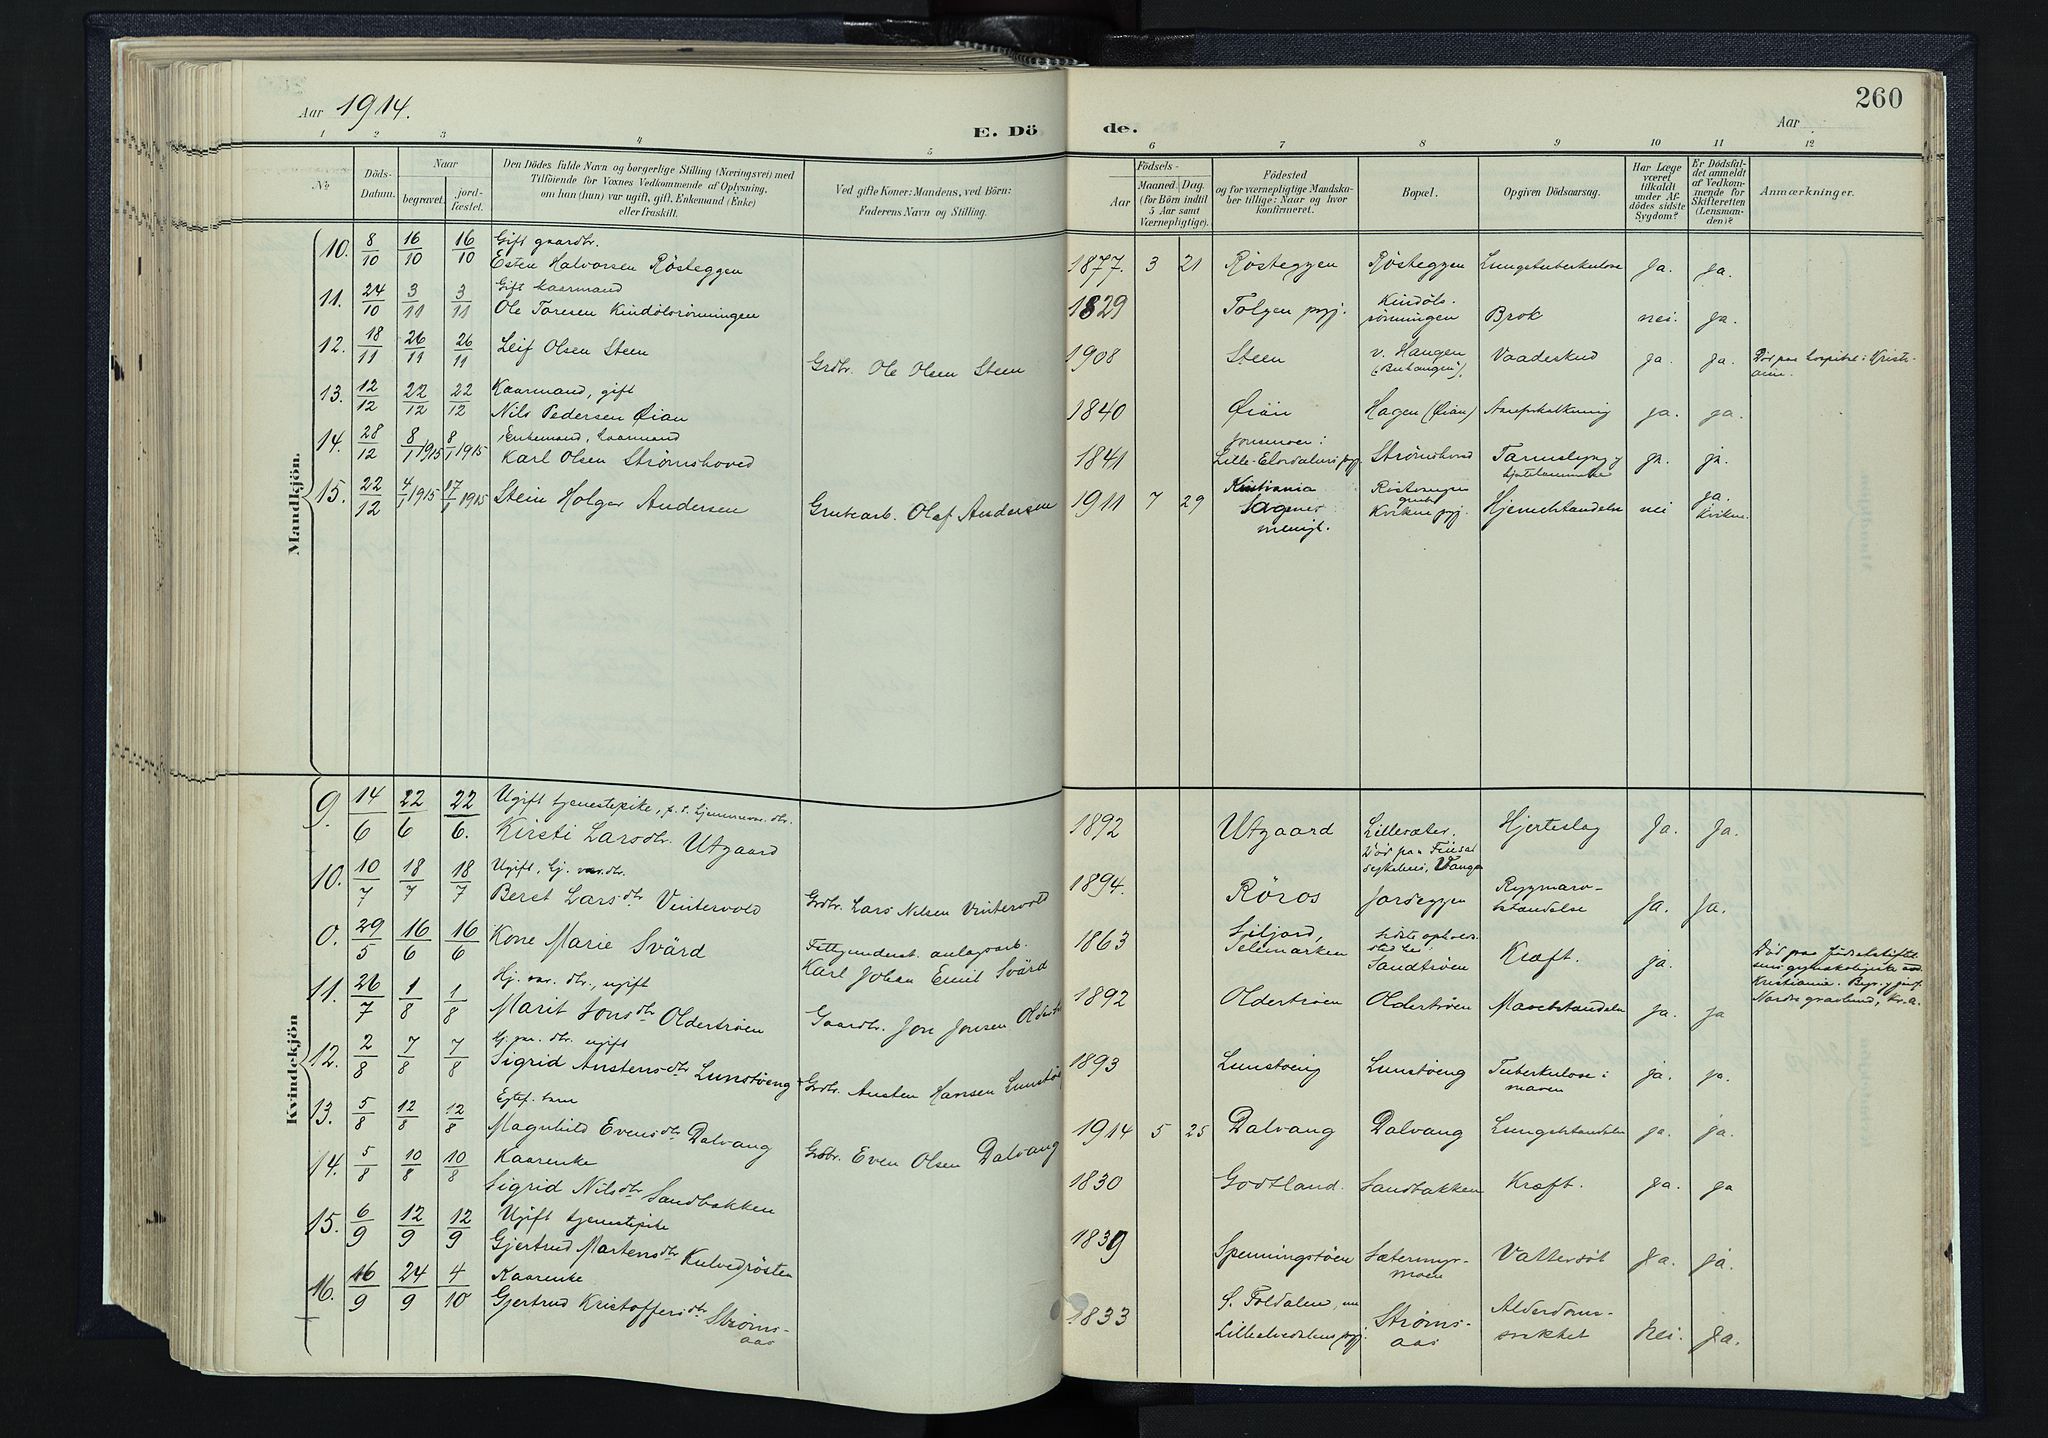 Aar 1914.
E. Dö
de.
Aar
260
1 2 3 4 5 6 7 8 9 10 11 12
№
Döds-Datum.
Naar
begravet.
jord-fæstet.
Den Dödes fulde Navn og borgerlige Stilling (Næringsvei) med
Tilföiende for Voxnes Vedkommende af Oplysning,
om han (hun) var ugift, gift, Enkemand (Enke)
eller fraskilt.
Ved gifte Koner: Mandens, ved Börn:
Faderens Navn og Stilling.
Födsels-
Aar
Maaned. Dag.
(for Börn indtil
5 Aar samt
Værnepligtige).
Födested
og for værnepligtige Mandska-
ber tillige: Naar og hvor
konfirmeret.
Bopæl.
Opgiven Dödsaarsag.
Har Læge
været
tilkaldt
under Af-
dödes sidste
Sygdom?
Er Dödsfal-
det anmeldt
af Vedkom-
mende for
Skifteretten
(Lensman-
den)?
Anmærkninger.
Mandkjön.
10. 8/10 16/10 16/10 Gift gaardbr.
Esten Halvorsen Røsteggen 1877. 3 21 Røsteggen Røsteggen Lungetuberkulose Ja. ja.
11. 24/10 3/11 3/11 Gift kaarmand
Ole Toresen Kindølsrønningen 1829 Tolgen prgj. Kindøls-
rønningen Brok nei. ja.
12. 18/11 26/11 26/11 Leif Olsen Steen Grdbr. Ole Olsen Steen 1908 Steen v. Haugen Vaadeskud ja. ja. Död paa hospital i Kristi-
ania.
13. 12/12 22/12 22/12 Kaarmand, gift
Nils Pedersen Øian 1840 Øian Hagen (Øian) Aareforkalkning ja. ja.
14. 28/12 8/1 1915 8/1 1915 Enkemand, kaarmand
Karl Olsen Strømshoved 1841 Lille-Elvedalens prgj. Strømshoved ja. ja.
15. 22/12 4/1 1915 17/1 1915 Stein Holger Andersen Grubearb. Olaf Andersen 1911 7 29 Kristiania
Sagenes
menigh. Kvikne prgj. Hjernebetændelse nei ja.
Kvikne.
Kvindekjön
9. 14/6 22/6 22/6. Ugift tjenestepike,
Kirsti Larsdtr. Utgaard 1892 Utgaard Lillesæter. Hjerteslag Ja. Ja.
10. 10/7 18/7 18/7 Ugift, Hj. vær. dtr.
Beret Larsdtr Vintervold Grdbr. Lars Nilsen Vintervold 1894. Røros Jordeggen Rygmarvs-
betændelse Ja. Ja.
0. 29/5 16/6 16/6 Kone Marie Svärd
Karl Johan Emil Svärd 1863 Siljord,
Telemarken Sidste opholds-
sted her
Sandtrøen Kræft. ja. Död paa Födselsstiftel-
sens gynækologiske avd.
Kristiania. Begr. paa
Nordre gravlund, Kr.a.
11. 26/7 1/8 1/8 Hj. vær. dtr., ugift
Marit Jonsdtr Oldertrøen Gaardbr. Jon Jonsen 1892 Oldertrøen Oldertrøen Mavebetændelse ja. ja
12. 2/8 7/8 7/8 Hj. vær. dtr. ugift
Sigrid Austensdtr Lunstøeng Grdbr. Austen Hansen 1893 Lunstøeng Lunstøeng Tuberkulose i
maven ja. ja.
13. 5/8 12/8 12/8 Egtef. barn
Magnhild Evensdtr Dalvang Grdbr. Even Olsen Dalvang 1914 5 25 Dalvang Dalvang Lungebetændelse ja. ja.
14. 5/8 10/8 10/8 Kaarenke
Sigrid Nilsdtr Sandbakken 1830 Godtland. Sandbakken Kræft. ja. ja
15. 6/9 12/9 12/9 Ugift tjenestepike
Gjertrud Martensdtr Kulvedrøsten 1839 Spenningstøen Sætermyr-
moen Vattersot Ja. ja.
16. 16/9 24/9 4/10 Kaarenke
Gjertrud Kristoffersdtr Strøms-
aas 1833 S. Foldalen, nu
Lilleelvedalens prgj. Strøms-
aas Alderdoms-
svækket Nei. Ja.